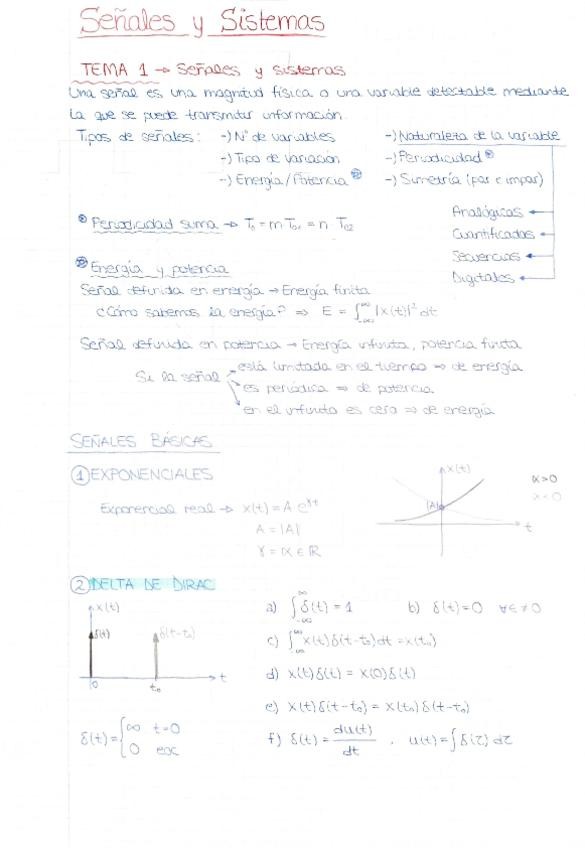 Señales y Sistemas
TEMA 1 → Señales y sistemas
Una señal es una magnitud física o una variable detectable mediante
la que se puede transmitir información.
Tipos de señales: -) Nº de variables -) Naturaleza de la variable
-) Tipo de variación -) Periodicidad
-) Energía/Potencia -) Simetría (par e impar)
Analógicas
Cuantificadas
Secuencias
Digitales
Periodicidad suma → T₀ = m T₀₁ = n T₀₂
Energía y potencia
Señal definida en energía → Energía finita
¿Cómo sabemos la energía? ⇒ E = ∫_{-∞}^{∞} |x(t)|² dt
Señal definida en potencia → Energía infinita, potencia finita
Si la señal está limitada en el tiempo ⇒ de energía
es periódica ⇒ de potencia
en el infinito es cero ⇒ de energía
SEÑALES BÁSICAS
① EXPONENCIALES
Exponencial real → x(t) = A e^{γt}
A = |A|
γ = α ∈ ℝ
x(t)
|A|
t
α>0
α<0
② DELTA DE DIRAC
x(t)
δ(t)
δ(t-t₀)
0
t₀
t
δ(t) = { ∞ t=0
0 eoc
a) ∫_{-∞}^{∞} δ(t) = 1 b) δ(t) = 0 ∀t ≠ 0
c) ∫_{-∞}^{∞} x(t) δ(t-t₀) dt = x(t₀)
d) x(t) δ(t) = x(0) δ(t)
e) x(t) δ(t-t₀) = x(t₀) δ(t-t₀)
f) δ(t) = du(t)/dt , u(t) = ∫ δ(τ) dτ